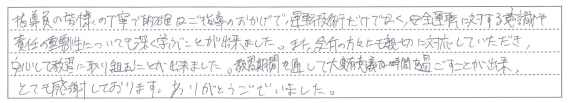 指導員の皆様の丁寧で的確なご指導のおかげで、運転技術だけでなく、安全運転に対する意識や
責任の重要性についても深く学ぶことが出来ました。また、受付の方々にも親切に対応していただき、
安心して教習に取り組むことが出来ました。教習期間を通して大変有意義な時間を過ごすことが出来、
とても感謝しております。ありがとうございました。